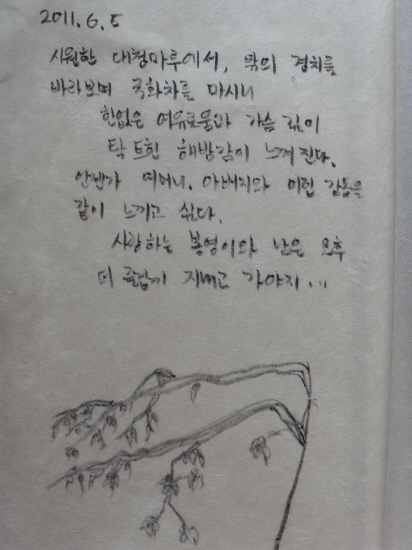 2011. 6. 5
시원한 대청마루에서, 밖의 경치를
바라보며 국화차를 마시니
한없은 여유로움과 가슴 깊이
탁 트힌 해방감이 느껴진다.
언젠가 어머니. 아버지와 이런 감동을
같이 느끼고 싶다.
사랑하는 봉영이와 남은 오후
더 즐겁게 지내고 가야지...